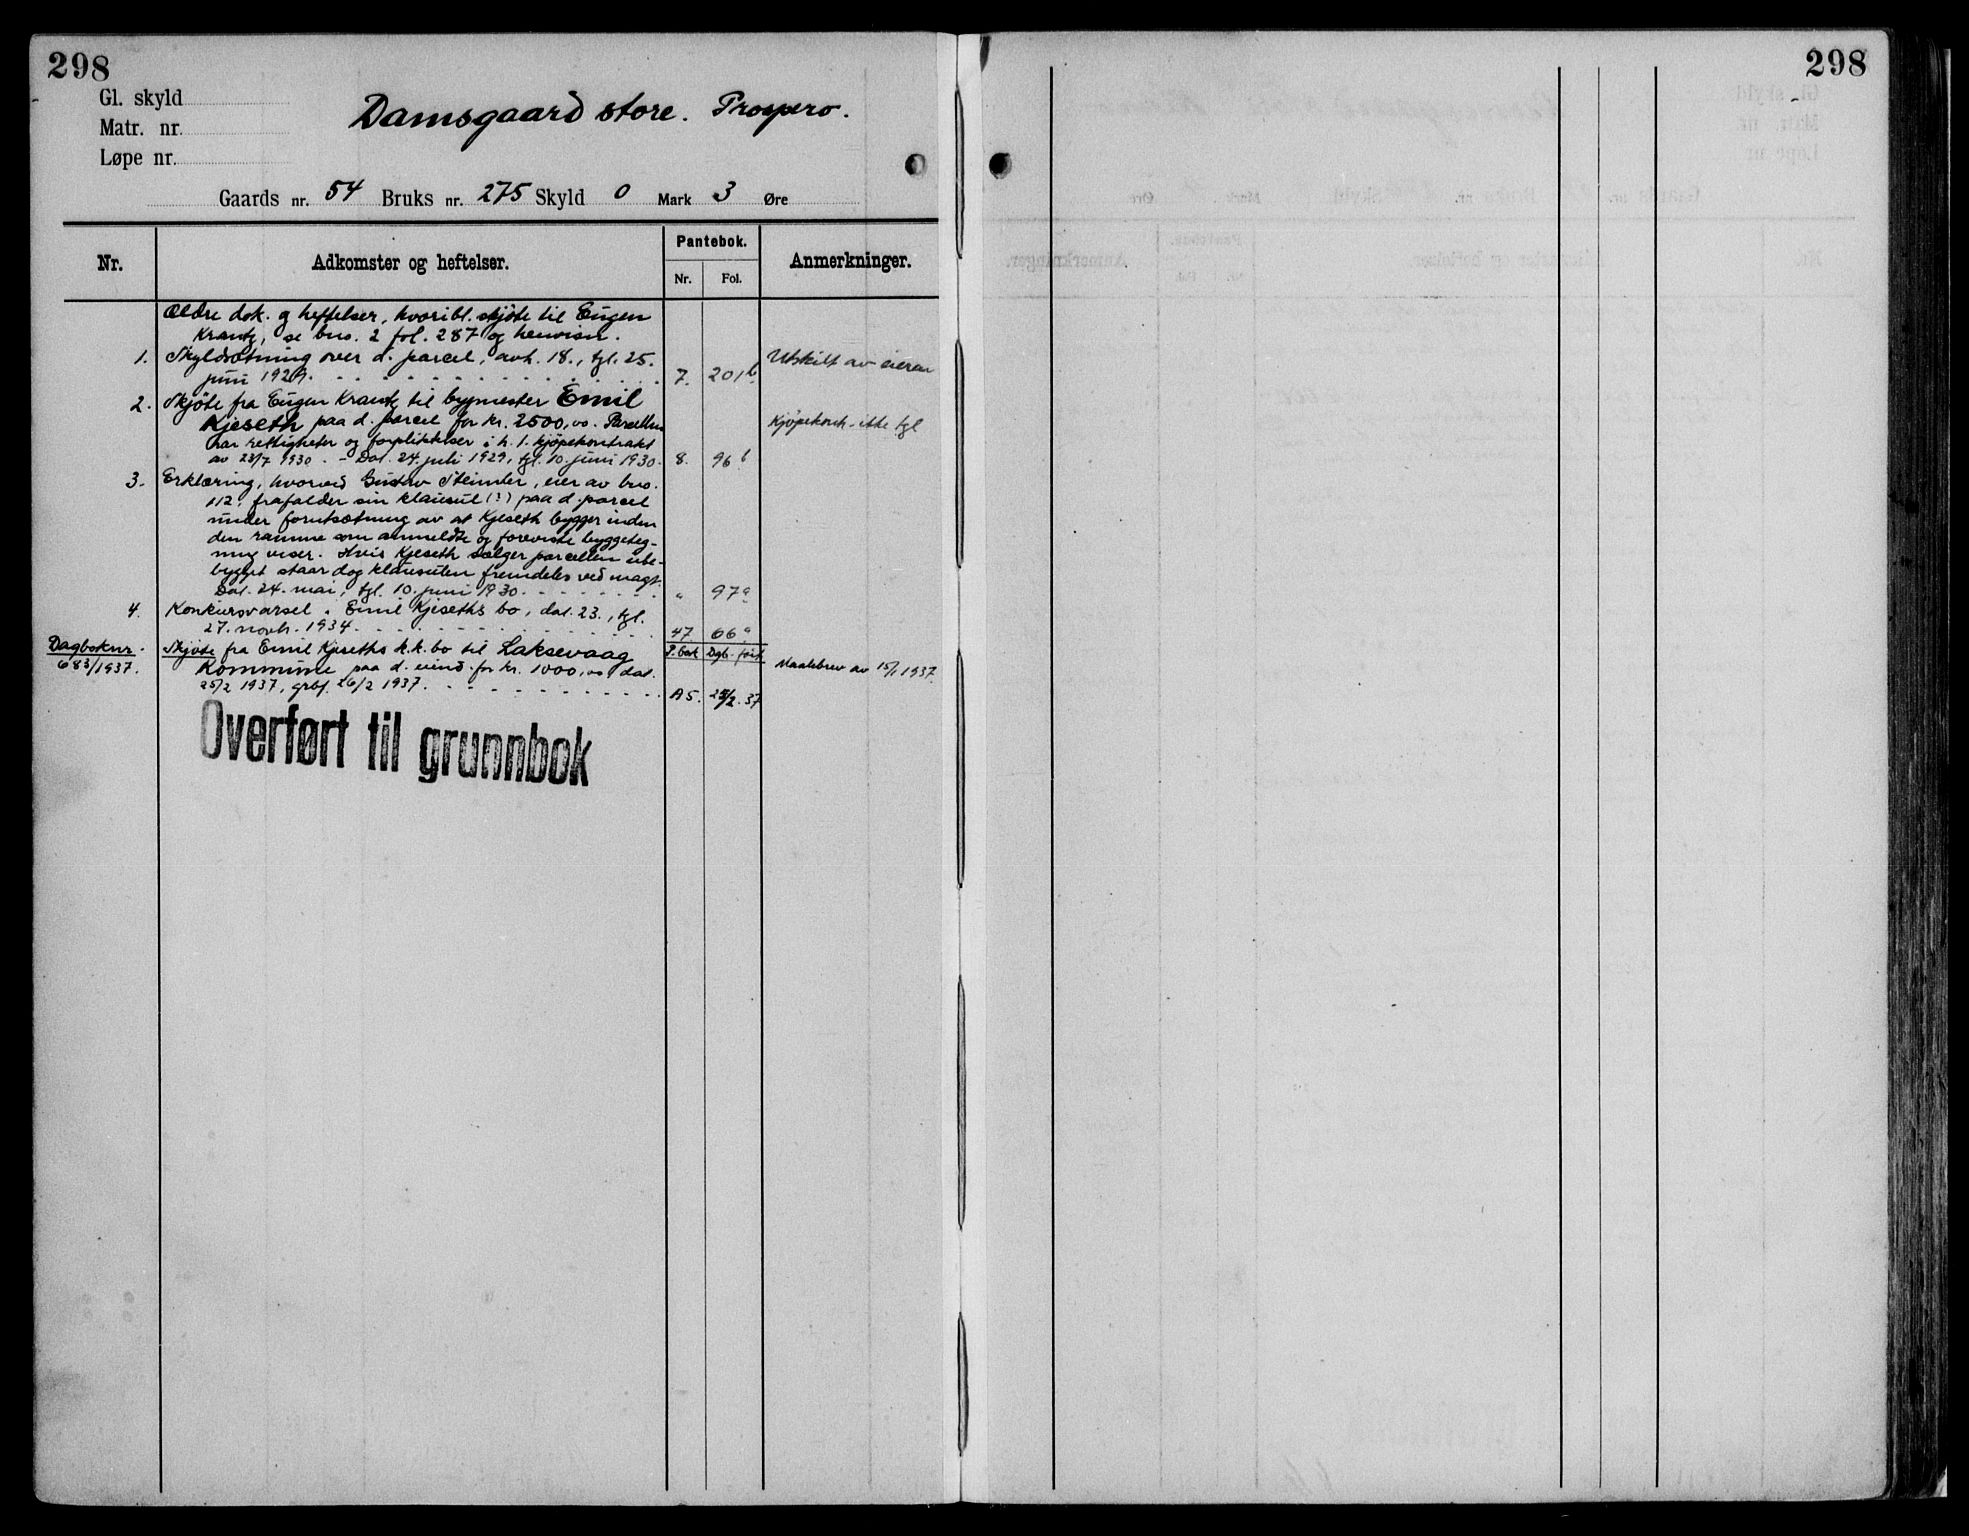 298
298
Gl. skyld
Matr. nr.
Løpe nr.
Damsgaard store. Prospero.
Gaards nr. 54 Bruks nr. 275 Skyld 0 Mark 3 Øre
Nr.
Adkomster og heftelser.
Pantebok.
Nr.
Fol.
Anmerkninger.
Ældre dok. og heftelser, hvoribl. skjøte til Eugen
Krantz, se bno. 2 fol. 287 og henvisn.
1. Skyldsætning over d. parcel, avh. 18., tgl. 25.
juni 1929. 7. 201b Utskilt av eieren
2. Skjøte fra Eugen Krantz til bygmester Emil
Kjeseth paa d. parcel for kr. 2500,00. Parcellen Kjøpekontr. ikke tgl
har rettigheter og forpliktelser i h. t. kjøpekontrakt
av 23/7 1930. - Dat. 24. juli 1929, tgl. 10. juni 1930. 8. 96b
3. Erklæring, hvorved Gustav Steinler, eier av bno.
112, frafalder sin klausul (?) paa d. parcel
under forutsætning av at Kjeseth bygger inden
den ramme som anmeldte og foreviste byggeteg-
ning viser. Hvis Kjeseth sælger parcellen ube-
bygget staar dog klausulen fremdeles ved magt.
Dat. 24. mai, tgl. 10. juni 1930. " 97a
4. Konkursvarsel i Emil Kjeseths bo, dat. 23., tgl.
27. novbr. 1934. 47. 66a
Dagboknr. Skjøte fra Emil Kjeseths k.k. bo til Laksevaag P.bok Dgb. ført
683/1937. Kommune paa d. eiend. for kr. 1000,00 dat. Maalebrev av 15/1 1937.
25/2 1937, grbf. 26/2 1937. A5. 25/2. 37
Overført til grunnbok